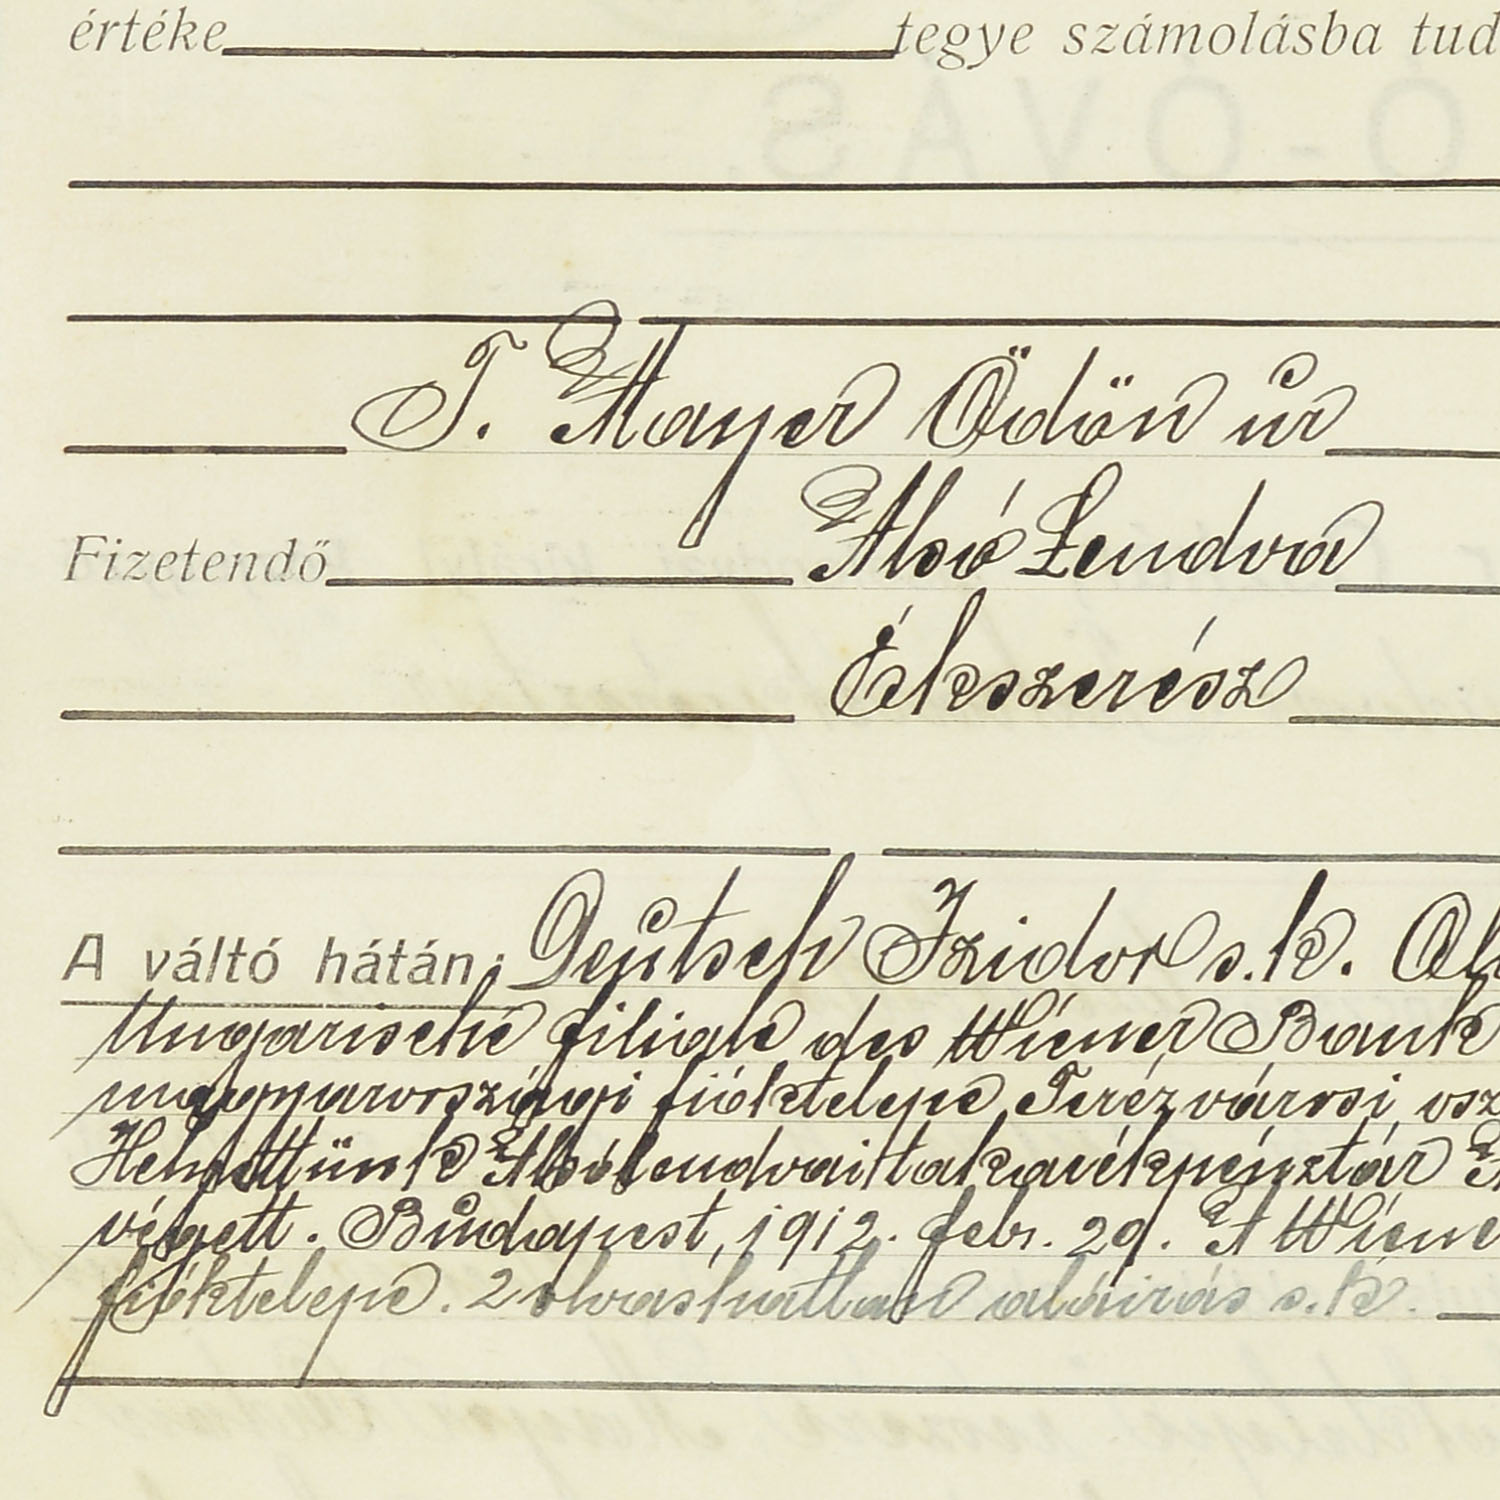 értéke tegye számolásba tud
T. Mayer Ödön úr
Fizetendő Alsó Lendva
Ékszerész
A váltó hátán: Deutsch Izidor s.k.
Ungarische filiale des Wiener Bank
magyarországi fióktelepe Terézvárosi osz
Helyettünk Alsólendvai takarékpénztár
végett. Budapest, 1912. febr. 29. A Wiene
fióktelepe. 2 olvashatlan aláirás s.k.